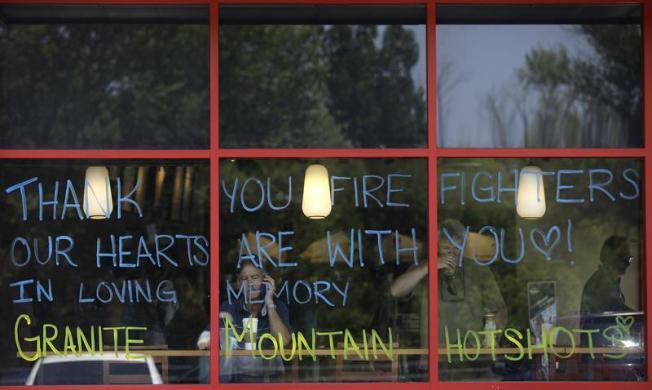 THANK YOU FIRE FIGHTERS
OUR HEARTS ARE WITH YOU♡!
IN LOVING MEMORY
GRANITE MOUNTAIN HOTSHOTS♡